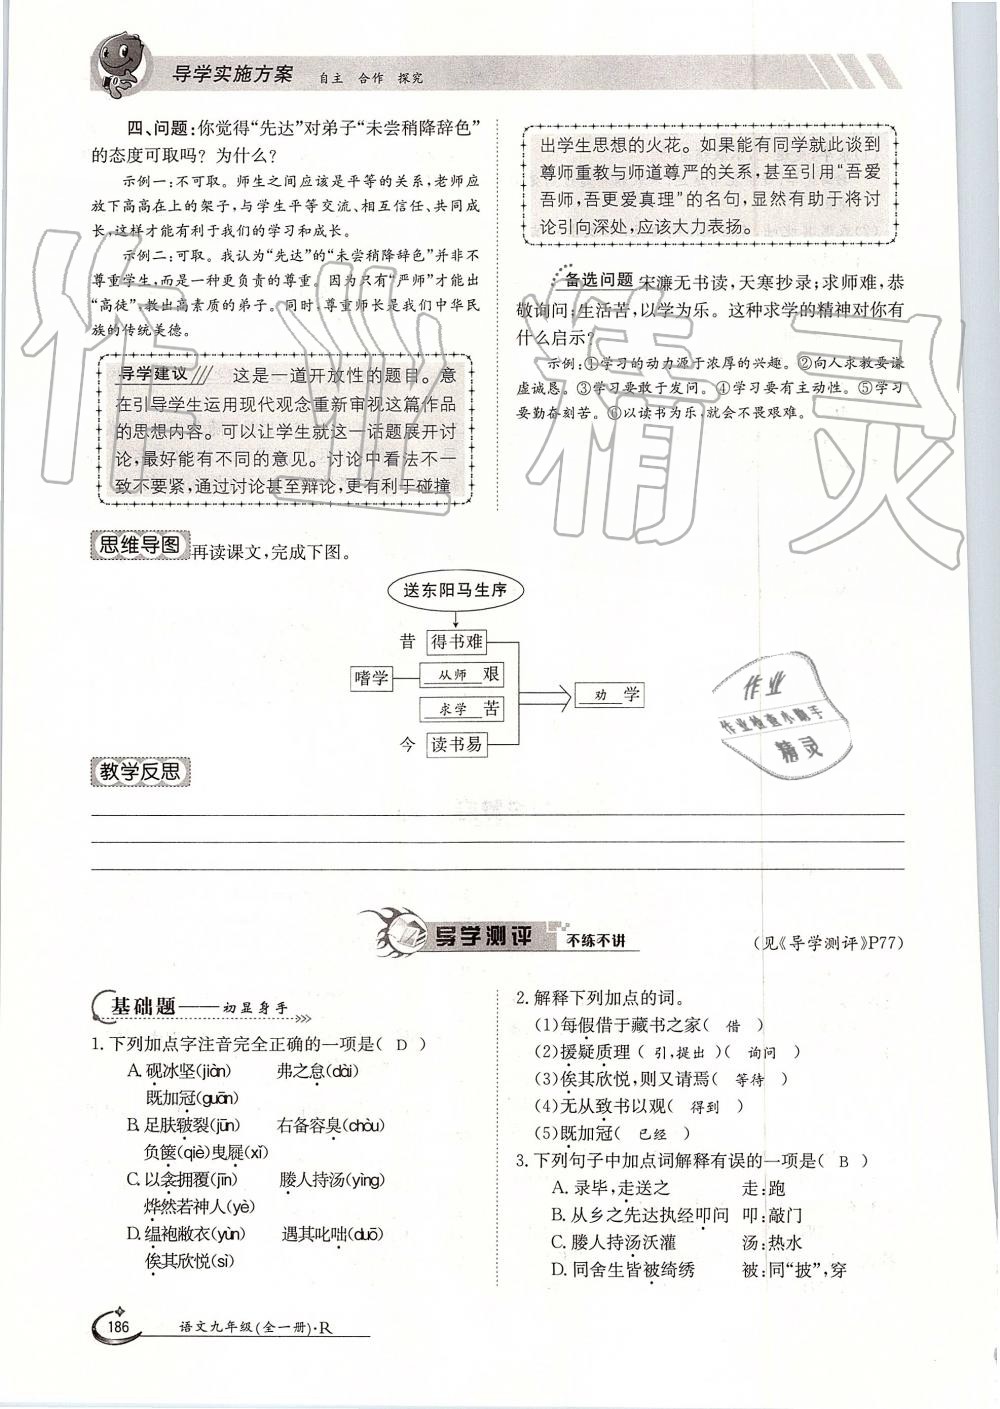 导学实施方案 自主 合作 探究
四、问题:你觉得“先达”对弟子“未尝稍降辞色”
的态度可取吗?为什么?
示例一:不可取。师生之间应该是平等的关系,老师应
放下高高在上的架子,与学生平等交流、相互信任、共同成
长,这样才能有利于我们的学习和成长。
示例二:可取。我认为“先达”的“未尝稍降辞色”并非不
尊重学生,而是一种更负责的尊重。因为只有“严师”才能出
“高徒”,教出高素质的弟子。同时,尊重师长是我们中华民
族的传统美德。
导学建议 这是一道开放性的题目。意
在引导学生运用现代观念重新审视这篇作品
的思想内容。可以让学生就这一话题展开讨
论,最好能有不同的意见。讨论中看法不一
致不要紧,通过讨论甚至辩论,更有利于碰撞
出学生思想的火花。如果能有同学就此谈到
尊师重教与师道尊严的关系,甚至引用“吾爱
吾师,吾更爱真理”的名句,显然有助于将讨
论引向深处,应该大力表扬。
备选问题 宋濂无书读,天寒抄录;求师难,恭
敬询问;生活苦,以学为乐。这种求学的精神对你有
什么启示?
示例:①学习的动力源于浓厚的兴趣。②向人求教要谦
虚诚恳。③学习要敢于发问。④学习要有主动性。⑤学习
要勤奋刻苦。⑥以读书为乐,就会不畏艰难。
作业精灵
思维导图 再读课文,完成下图。
送东阳马生序
昔 得书难
嗜学 从师 艰
求学 苦
劝 学
今 读书易
作业
作业检查小助手
精灵
教学反思
导学测评 不练不讲
(见《导学测评》P77)
基础题——初显身手
1. 下列加点字注音完全正确的一项是( D )
A. 砚冰坚(jiàn) 弗之怠(dài)
既加冠(guān)
B. 足肤皲裂(jūn) 右备容臭(chòu)
负箧(qiè)曳屣(xǐ)
C. 以衾拥覆(jīn) 媵人持汤(yìng)
烨然若神人(yè)
D. 缊袍敝衣(yùn) 遇其叱咄(duō)
俟其欣悦(sì)
2. 解释下列加点的词。
(1)每假借于藏书之家( 借 )
(2)援疑质理( 引,提出 )( 询问 )
(3)俟其欣悦,则又请焉( 等待 )
(4)无从致书以观( 得到 )
(5)既加冠( 已经 )
3. 下列句子中加点词解释有误的一项是( B )
A. 录毕,走送之 走:跑
B. 从乡之先达执经叩问 叩:敲门
C. 媵人持汤沃灌 汤:热水
D. 同舍生皆被绮绣 被:同“披”,穿
186 语文九年级(全一册)·R